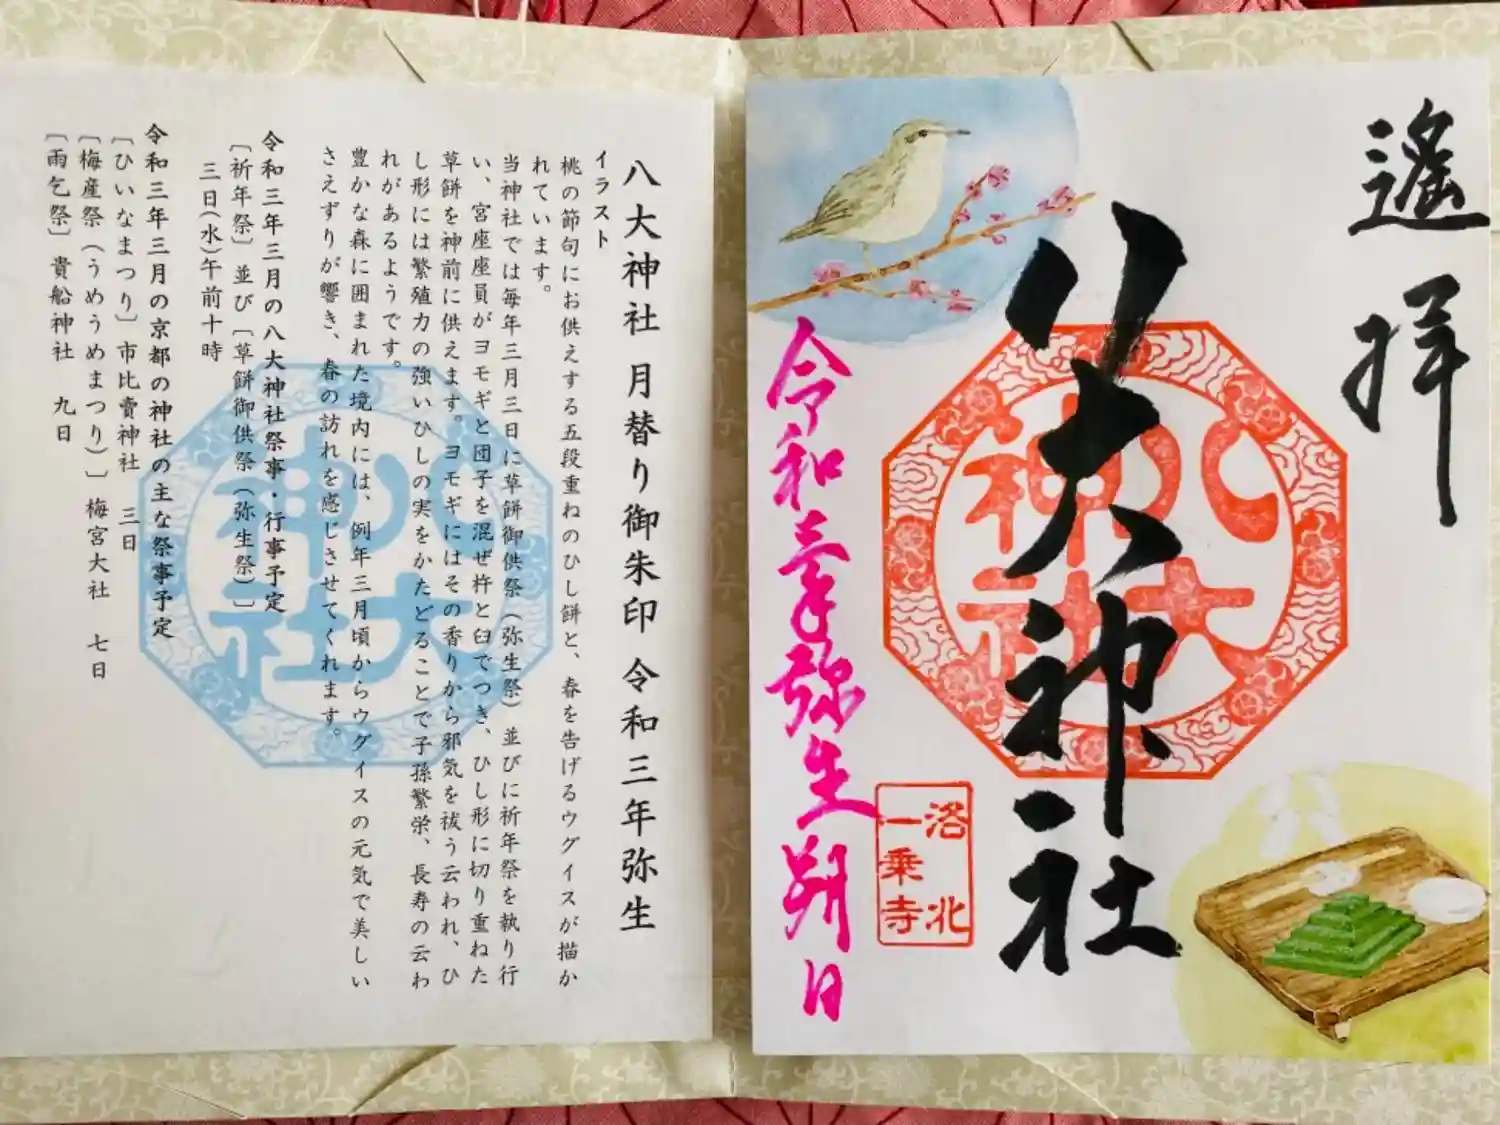 遙拝
八大神社
八大
神社
洛北
一乗寺
令和三年弥生朔日
八大神社 月替り御朱印 令和三年弥生
イラスト
桃の節句にお供えする五段重ねのひし餅と、春を告げるウグイスが描か
れています。
当神社では毎年三月三日に草餅御供祭（弥生祭）並びに祈年祭を執り行
い、宮座座員がヨモギと団子を混ぜ杵と臼でつき、ひし形に切り重ねた
草餅を神前に供えます。ヨモギにはその香りから邪気を祓う云われ、ひ
し形には繁殖力の強いひしの実をかたどることで子孫繁栄、長寿の云わ
れがあるようです。
豊かな森に囲まれた境内には、例年三月頃からウグイスの元気で美しい
さえずりが響き、春の訪れを感じさせてくれます。
令和三年三月の八大神社祭事・行事予定
［祈年祭］並び［草餅御供祭（弥生祭）］
三日(水)午前十時
令和三年三月の京都の神社の主な祭事予定
［ひいなまつり］市比賣神社 三日
［梅産祭（うめうめまつり）］梅宮大社 七日
［雨乞祭］貴船神社 九日
八大
神社